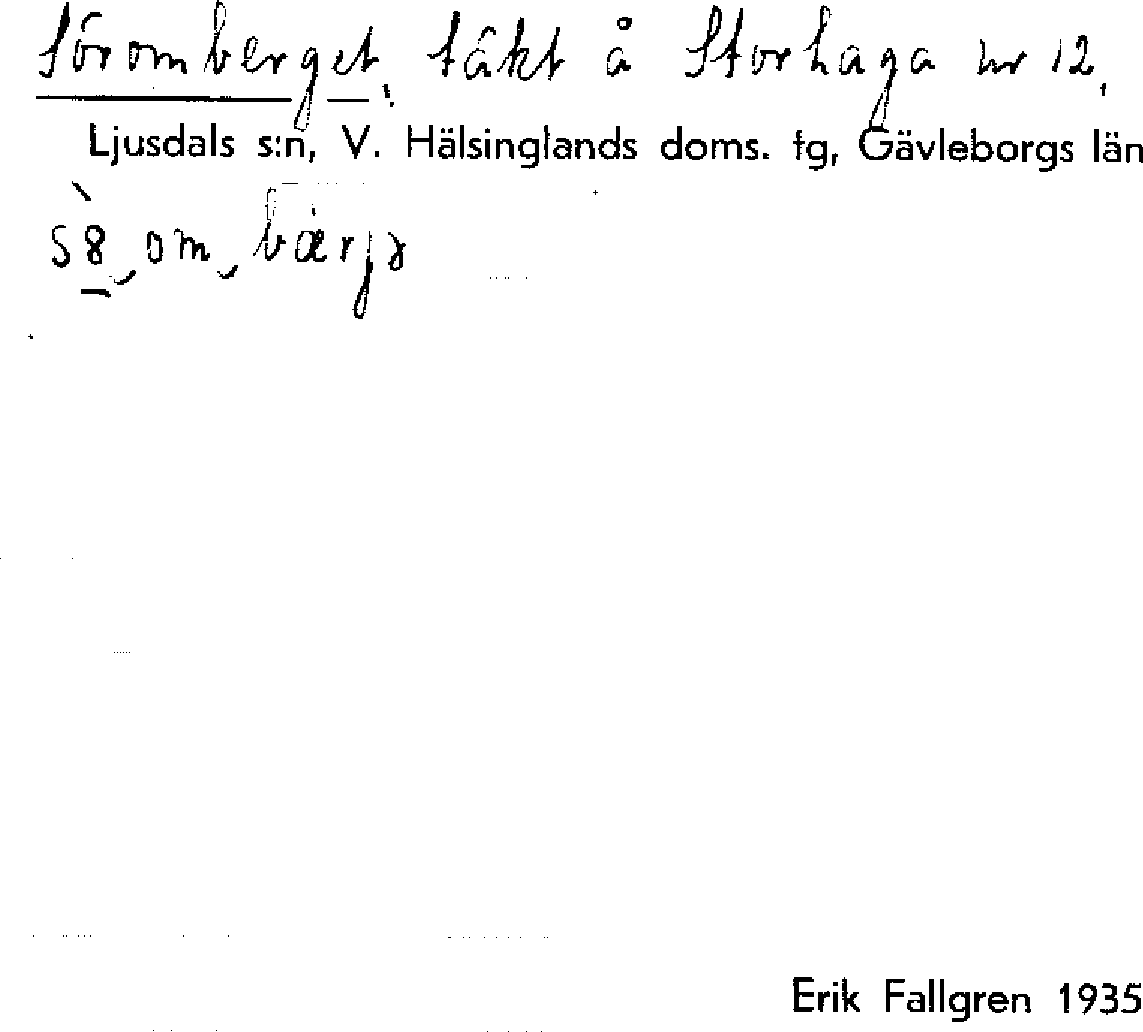 Söromberget, täkt å Storhaga nr 12,
Ljusdals s:n, V. Hälsinglands doms. tg, Gävleborgs län
Erik Fallgren 1935